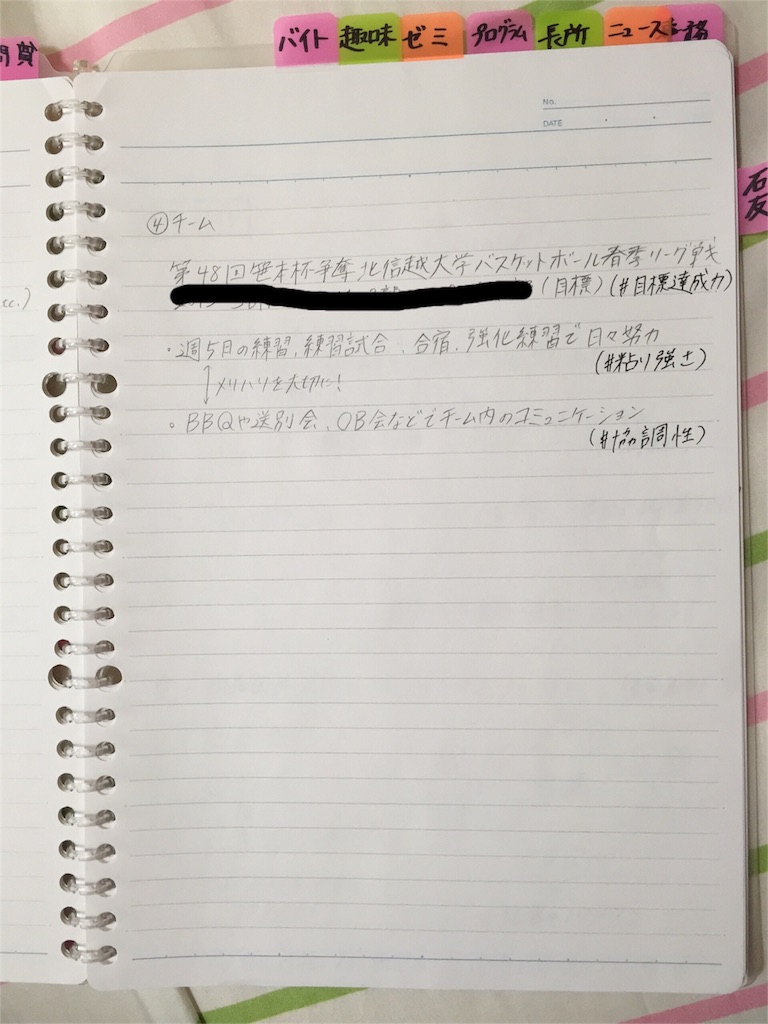 バイト 趣味 ゼミ プログラム 長所 ニュース
No.
DATE
④チーム
第48回笹本杯争奪北信越大学バスケットボール春季リーグ戦
(目標)(#目標達成力)
・週5日の練習、練習試合、合宿、強化練習で日々努力
(#粘り強さ)
↕メリハリを大切に!
・BBQや送別会、OB会などでチーム内のコミュニケーション
(#協調性)